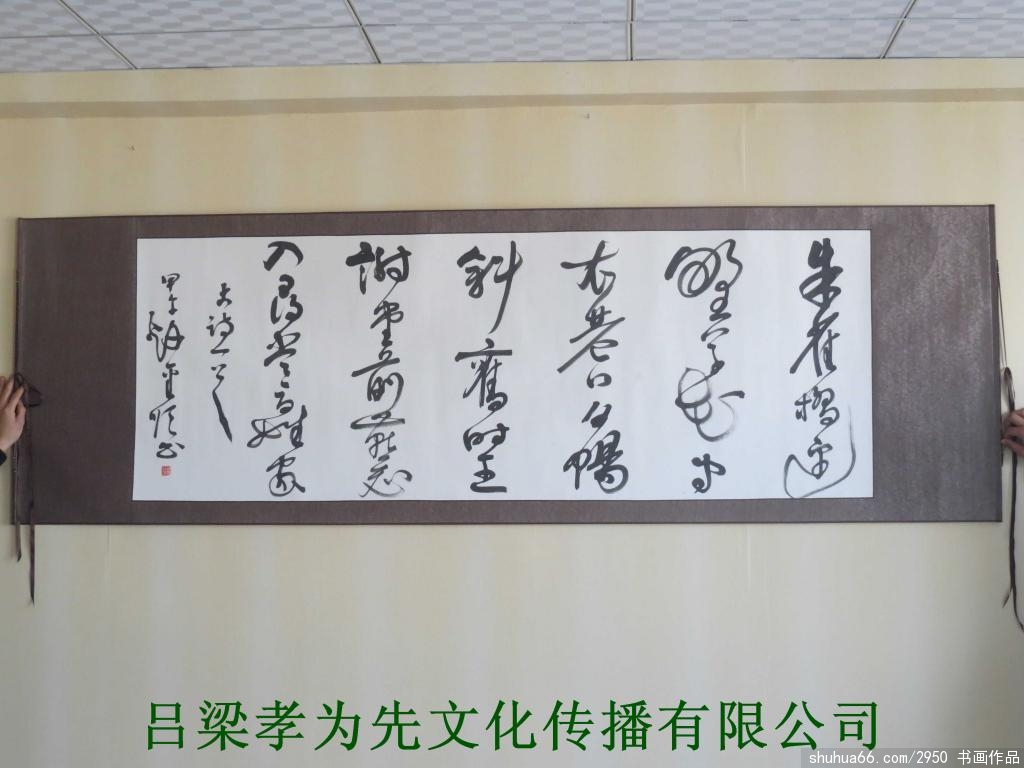 朱雀橋邊
野草花烏
衣巷口夕陽
斜舊時王
謝堂前燕飛
入尋常百姓家
詩一首
甲午 書
吕梁孝为先文化传播有限公司
shuhua66.com/2950 书画作品